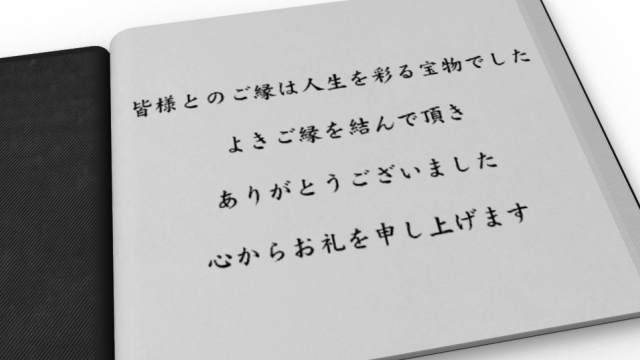 皆様とのご縁は人生を彩る宝物でした
よきご縁を結んで頂き
ありがとうございました
心からお礼を申し上げます